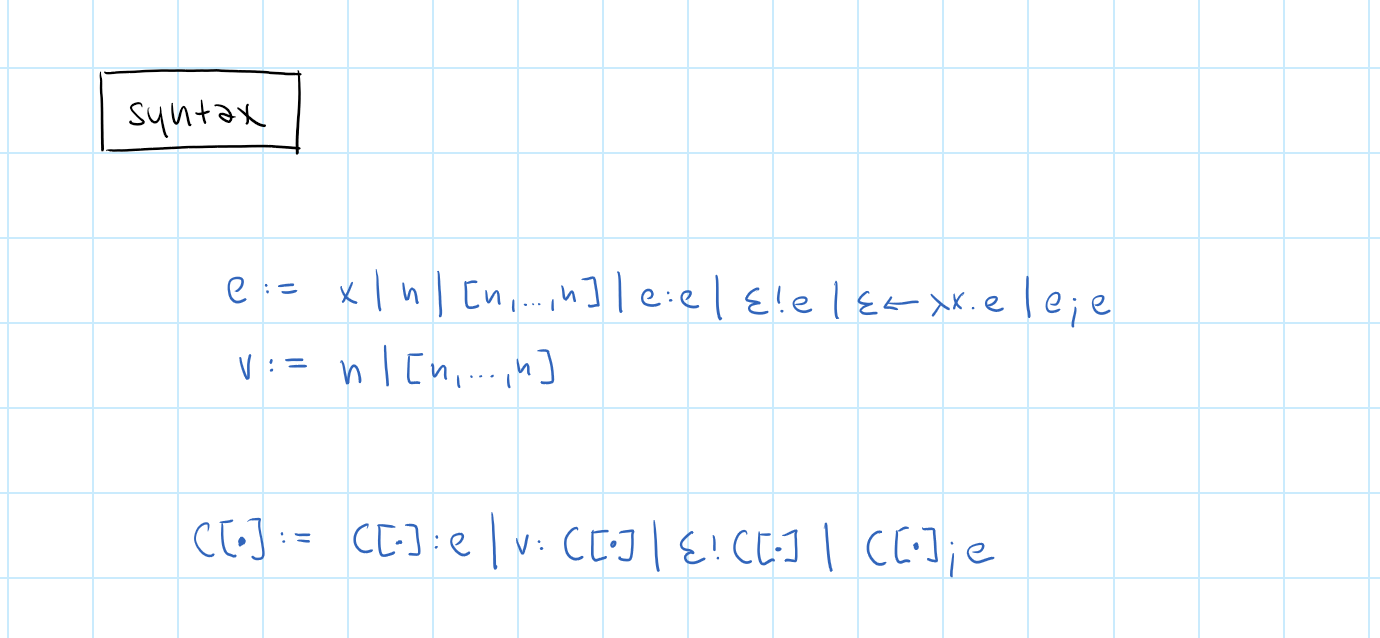 syntax
e := x | n | [n,...,n] | e:e | ε!e | ε ← λx.e | e;e
v := n | [n,...,n]
C[·] := C[·]:e | v:C[·] | ε!C[·] | C[·];e